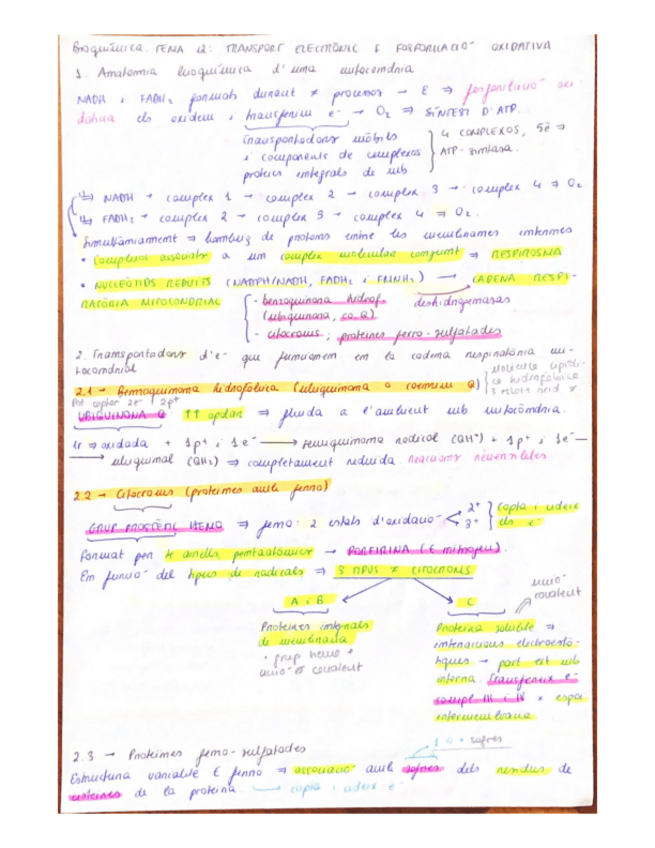 Bioquímica. TEMA 12: TRANSPORT ELECTRÒNIC I FOSFORILACIÓ OXIDATIVA
1. Anatomia bioquímica d'una mitocòndria
NADH i FADH₂ formats durant ≠ processos → E ⇒ fosforilació oxi-
dativa els oxidem i transferim e⁻ → O₂ ⇒ SÍNTESI D'ATP.
transportadors mòbils
i components de complexos
proteics integrals de mb
4 COMPLEXOS, 5è ⇒
ATP-sintasa.
NADH → complex 1 → complex 2 → complex 3 → complex 4 ⇒ O₂
FADH₂ → complex 2 → complex 3 → complex 4 ⇒ O₂.
Simultàniament ⇒ bombeig de protons entre les membranes internes
• Complexos associats a un complex molecular conjunt ⇒ RESPIROSMA
• NUCLEÒTIDS REDUITS (NADPH/NADH, FADH₂ i FMNH₂) → CADENA RESPI-
RATÒRIA MITOCONDRIAL
- benzoquinona hidrof.
(ubiquinona, co. Q)
- citocroms; proteïnes ferro-sulfatades
deshidrogenasas
2. Transportadors d'e⁻ que funcionen en la cadena respiratòria mi-
tocondrial
2.1 → Benzoquinona hidrofòbica (ubiquinona o coenzim Q)
molècula lipídi-
ca hidrofòbica
Pot captar 2e⁻ i 2p⁺
UBIQUINONA Q: ↑↑ apolar ⇒ fluida a l'ambient mb mitocòndria.
1r ⇒ oxidada + 1p⁺ i 1e⁻ → semiquinona radical (QH•) + 1p⁺ i 1e⁻ —
→ ubiquinol (QH₂) ⇒ completament reduida. reaccions reversibles
2.2 → Citocroms (proteïnes amb ferro)
GRUP PROSTÈTIC HEMO ⇒ ferro: 2 estats d'oxidació
2⁺
3⁺
capta i cedeix
els e⁻
Format per 4 anells pentatòmics → PORFIRINA (E nitrogen).
En funció del tipus de radicals ⇒ 3 TIPUS ≠ CITOCROMS
A i B
C
unió
covalent
Proteïnes integrals
de membrana
• grup hemo +
unió covalent
Proteïna soluble ⇒
interaccions electrostà-
tiques → part ext mb
interna. Transfereix e⁻
compl III i IV × espai
intermembrana.
2.3 → Proteïnes ferro-sulfatades
sofres
Estructura variable E ferro ⇒ associació amb sofres dels residus de
cisteïnes de la proteïna → capta i cedeix e⁻